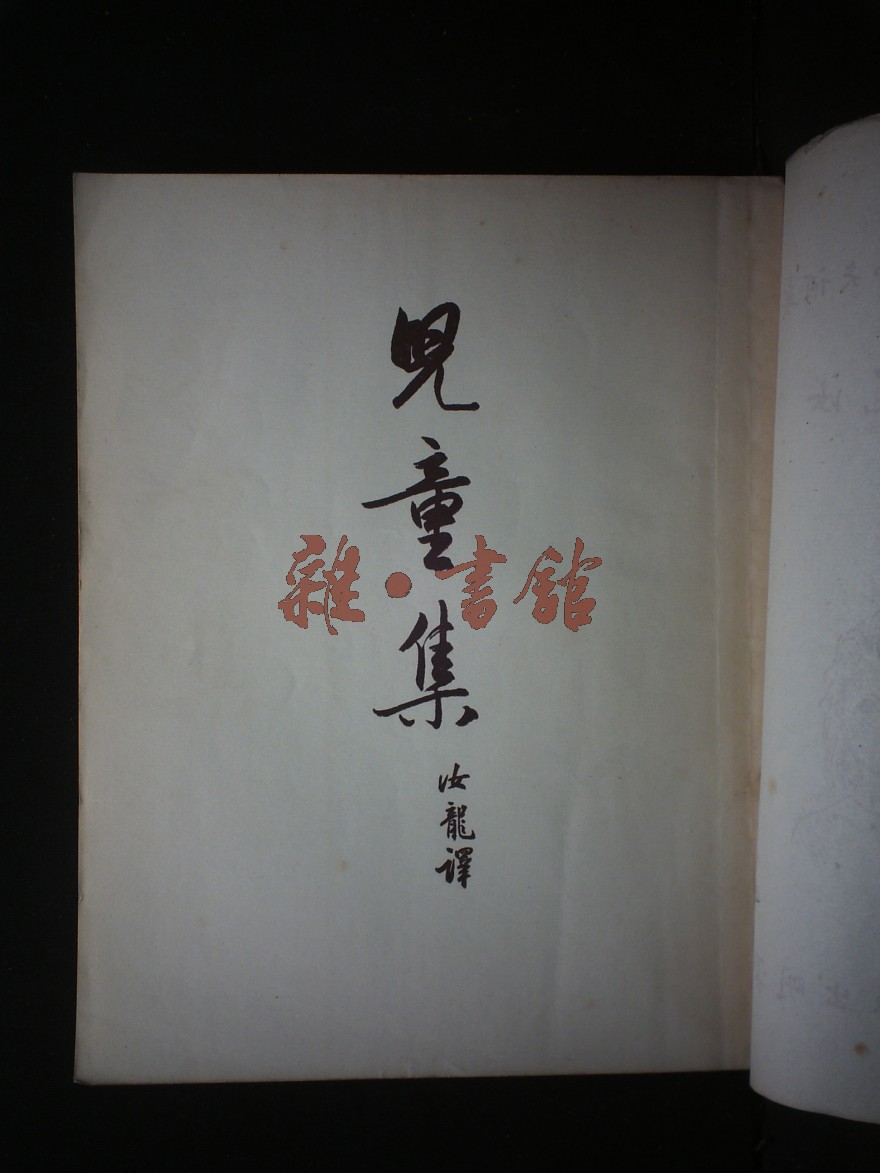 兒童集
汝龍譯
雜·書館